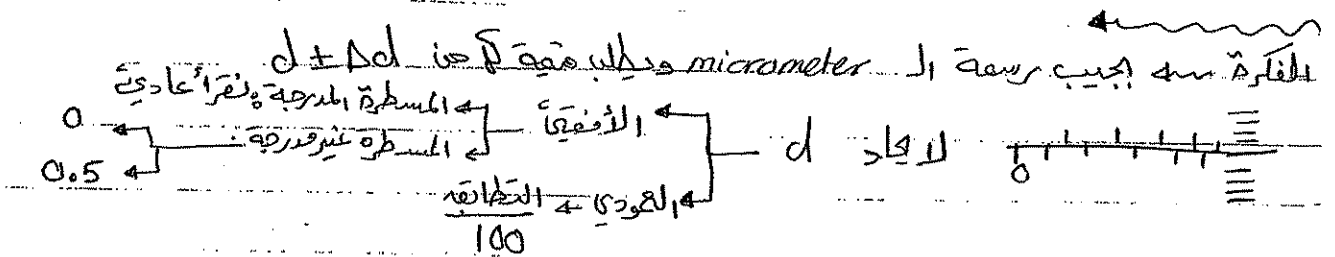 الفكرة سه اجيب رسمة الـ micrometer ويطلب قيمة كل من d ± Δd
لايجاد d
الأفقي
المسطرة المدرجة نقرأ عادي
المسطرة غير مدرجة
0
0.5
العمودي ← التطابق
100
0